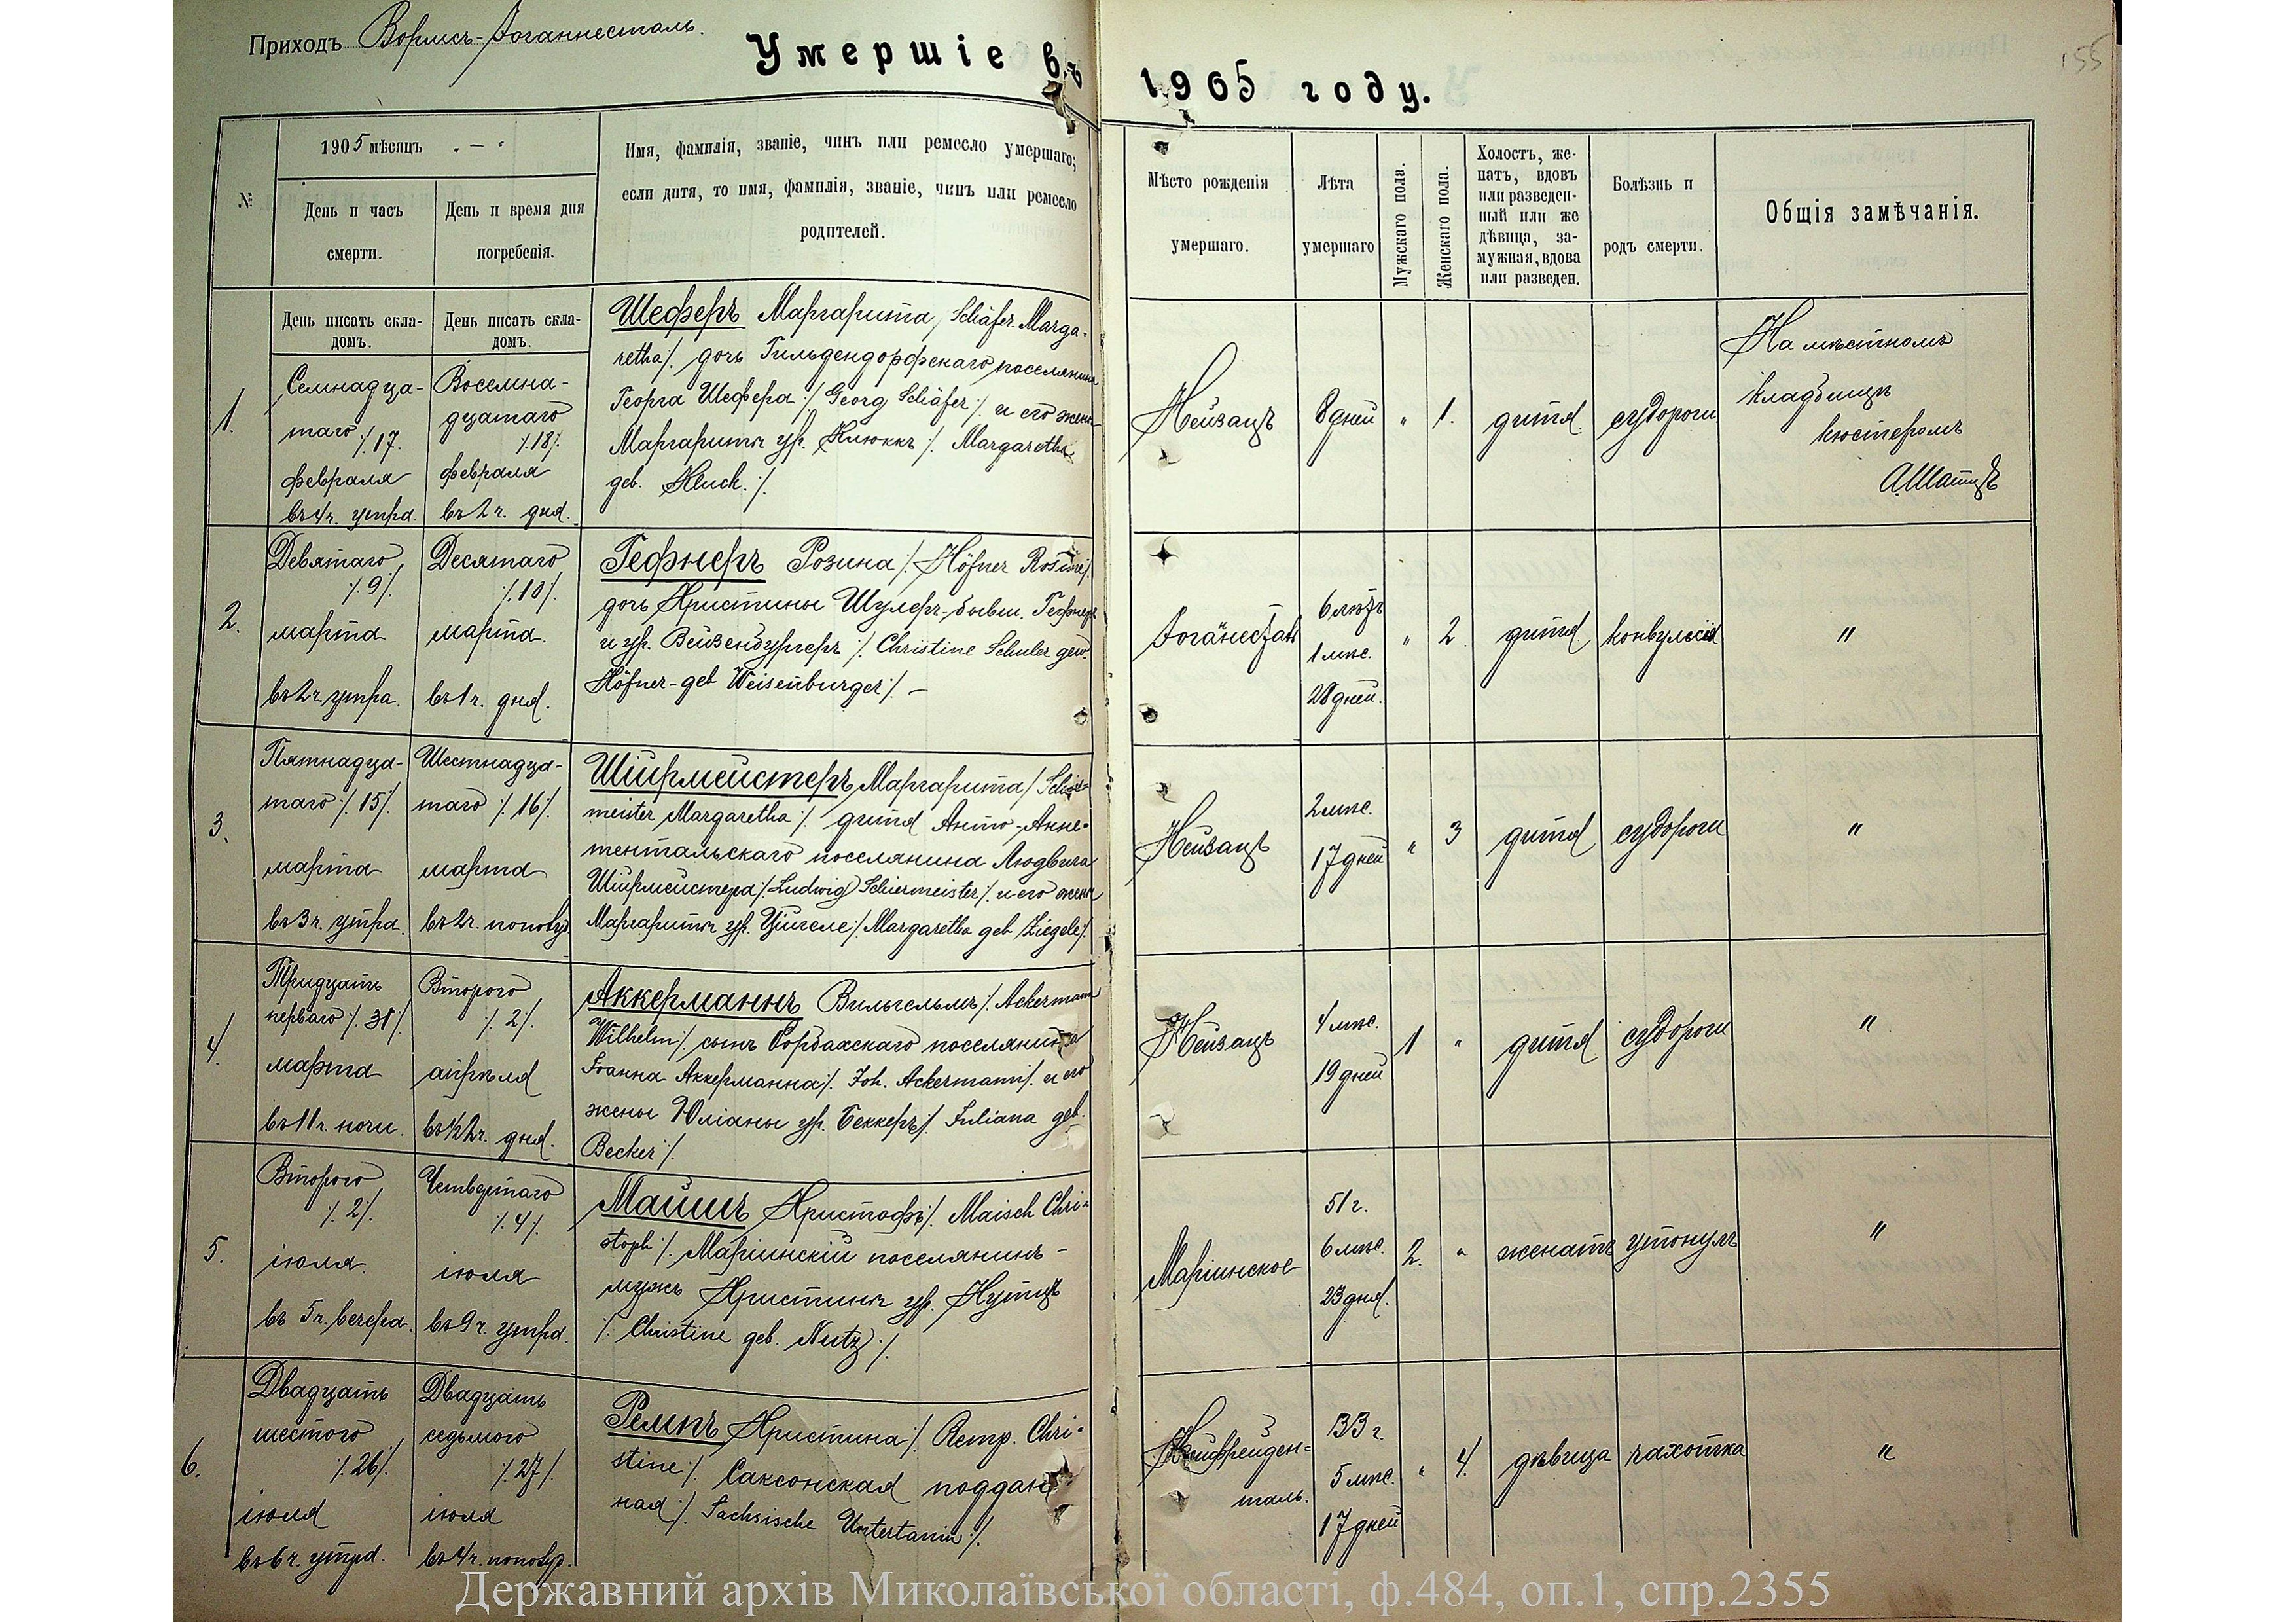 Приходъ Вормсъ-Іоганнесталь.
155
Умершіе въ 1905 году.
№
1905 мѣсяцъ
День и часъ
смерти.
День и время дня
погребенія.
Имя, фамилія, званіе, чинъ или ремесло умершаго;
если дитя, то имя, фамилія, званіе, чинъ или ремесло
родителей.
Мѣсто рожденія
умершаго.
Лѣта
умершаго
Мужскаго пола.
Женскаго пола.
Холостъ, же-
натъ, вдовъ
или разведен-
ный или же
дѣвица, за-
мужная, вдова
или разведен.
Болѣзнь и
родъ смерти.
Общія замѣчанія.
День писать скла-
домъ.
День писать скла-
домъ.
1.
Семнадца-
таго /17.
февраля
въ 4 ч. утра.
Восемна-
дцатаго
/18/.
февраля
въ 2 ч. дня.
Шеферъ Маргарита / Schäfer Marga-
retha /. дочь Гильдендорфскаго поселянина
Георга Шефера /. Georg Schäfer /. и его жены
Маргариты ур. Клюккъ /. Margaretha
geb. Kluck. /.
Нейзацъ
8 дней
"
1.
дитя
судороги
На мѣстномъ
кладбищѣ
кюстеромъ
2.
Девятаго
/. 9 /.
марта
въ 2 ч. утра.
Десятаго
/. 10 /.
марта.
въ 1 ч. дня.
Гефнеръ Розина /. Höfner Rosine /.
дочь Христины Шулеръ, бывш. Гефнеръ
и ур. Вейзенбургеръ /. Christine Schuler gew.
Höfner - geb Weisenburger /. -
6 лѣтъ
1 мѣс.
28 дней.
"
2.
дитя
конвульсія
"
3.
Пятнадца-
таго /. 15 /.
марта
въ 3 ч. утра.
Шестнадца-
таго /. 16 /.
марта
въ 2 ч. пополуд
Шіирмейстеръ, Маргарита /
meister, Margaretha /. дитя
поселянина Людвига
Шіирмейстера /. Ludwig Schiermeister /. и его жены
Маргариты ур. Ціигеле /. Margaretha geb Ziegele /.
Нейзацъ
2 мѣс.
17 дней
"
3
дитя
судороги
"
4.
Тридцать
перваго /. 31 /.
марта
въ 11 ч. ночи.
Второго
/. 2 /.
апрѣля
дня.
Аккерманнъ Вильгельмъ /. Ackermann
Wilhelm /. сынъ Рорбахскаго поселянина
Іоанна Аккерманна /. Joh. Ackermann /. и его
жены Юліаны ур. Беккеръ /. Juliana geb.
Becker /.
Нейзацъ
4 мѣс.
19 дней
1
"
дитя
судороги
"
5.
Второго
/. 2 /.
іюля.
въ 5 ч. вечера.
Четвертаго
/. 4 /.
іюля
въ 9 ч. утра.
Майшъ Христофъ /. Maisch Chri-
stoph /. Маріинскій поселянинъ -
мужъ Христины ур. Нутцъ
/. Christine geb. Nutz /.
Маріинское
51 г.
6 мѣс.
23 дня.
2.
"
женатъ
утонулъ
"
6.
Двадцать
шестого
/. 26 /.
іюля
въ 6 ч. утра.
Двадцать
седьмого
/. 27 /.
іюля
въ 4 ч. пополуд.
Ремпъ Христина /. Remp. Chri-
stine /. Саксонская поддан-
ная /. Sachsische Untertanin /.
Нейфрейден-
таль.
33 г.
5 мѣс.
17 дней
"
4.
дѣвица
чахотка
"
Державний архів Миколаївської області, ф.484, оп.1, спр.2355